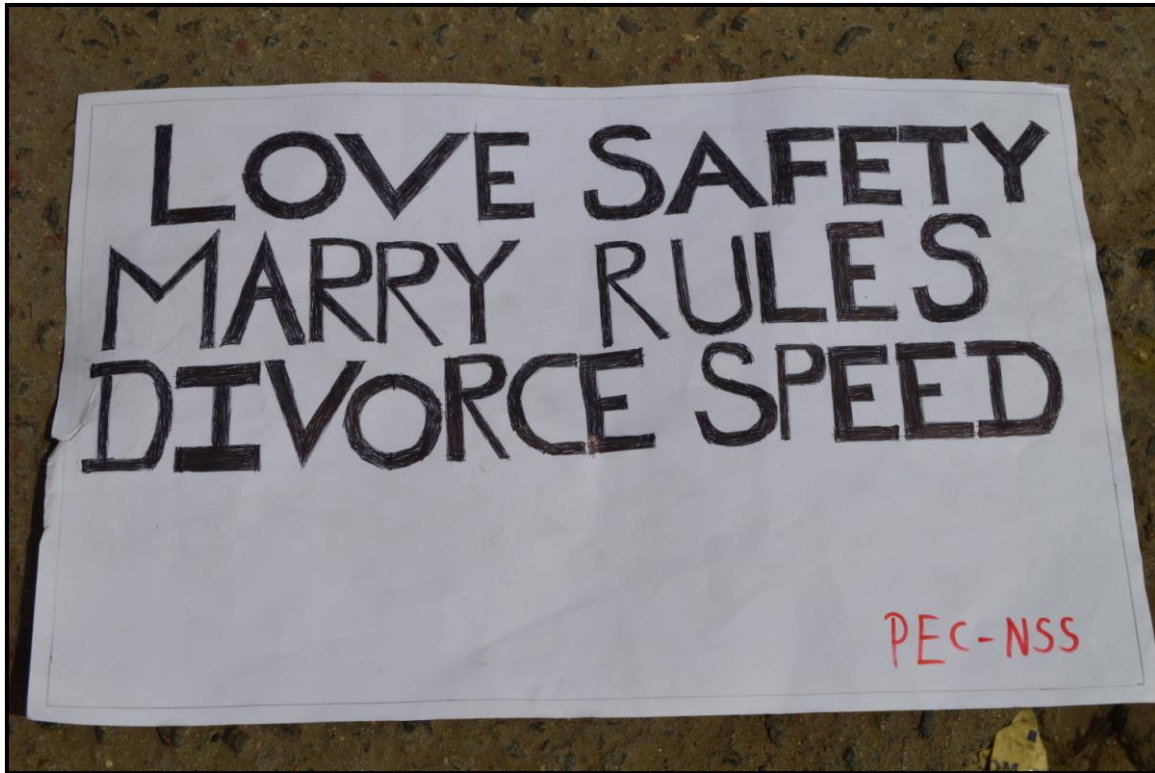 LOVE SAFETY
MARRY RULES
DIVORCE SPEED
PEC-NSS